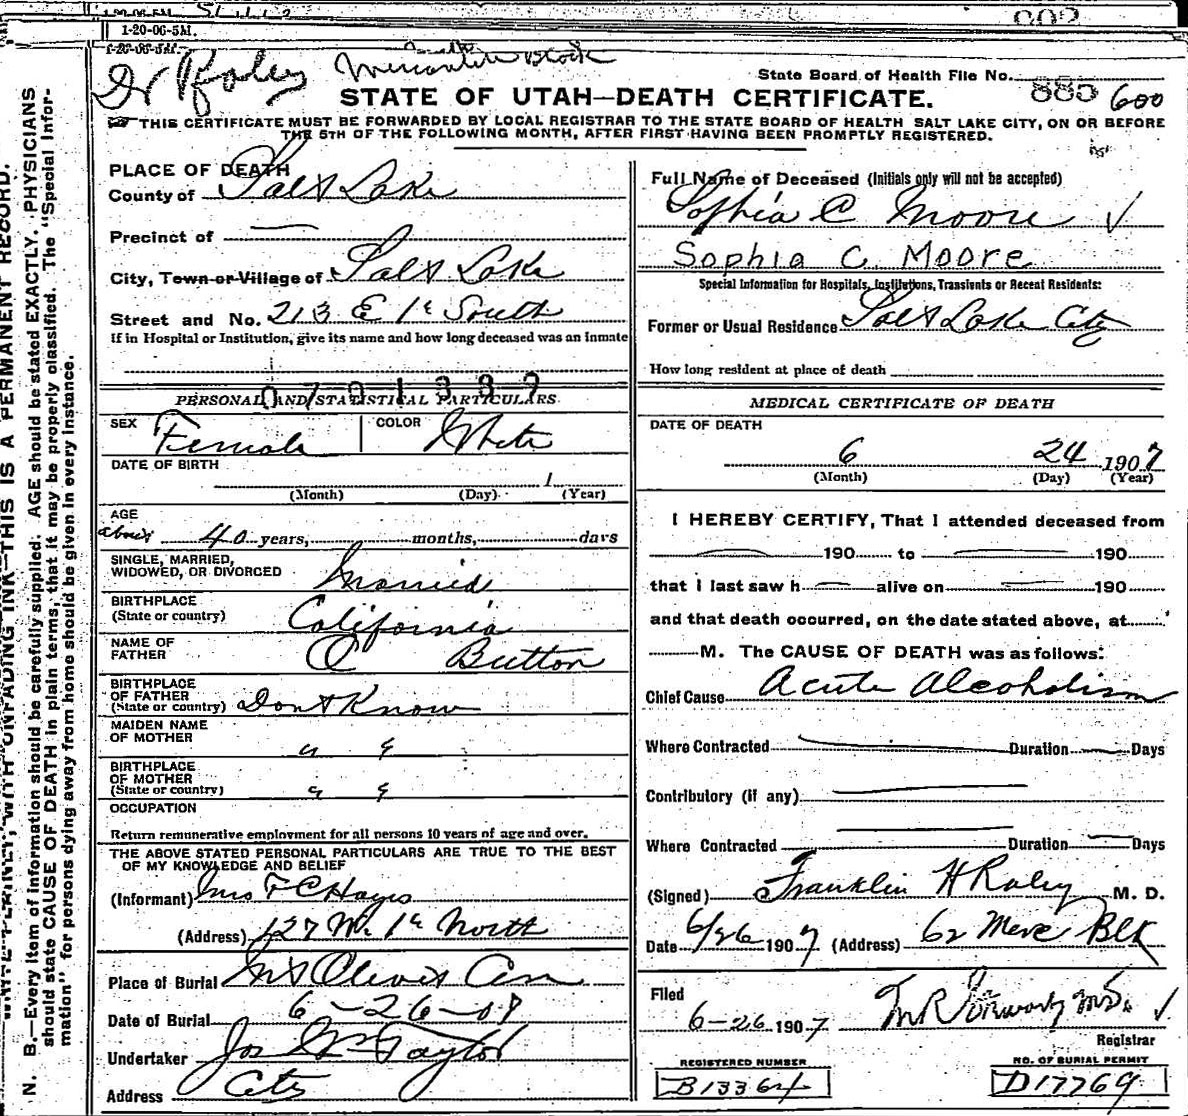 1-20-06-5M.
Dr Raley Mercantile Block
State Board of Health File No. 885 600
STATE OF UTAH—DEATH CERTIFICATE.
THIS CERTIFICATE MUST BE FORWARDED BY LOCAL REGISTRAR TO THE STATE BOARD OF HEALTH SALT LAKE CITY, ON OR BEFORE
THE 5TH OF THE FOLLOWING MONTH, AFTER FIRST HAVING BEEN PROMPTLY REGISTERED.
PLACE OF DEATH
County of Salt Lake
Precinct of —
City, Town or Village of Salt Lake
Street and No. 213 E 1st South
If in Hospital or Institution, give its name and how long deceased was an inmate
PERSONAL AND STATISTICAL PARTICULARS
SEX Female COLOR White
DATE OF BIRTH
(Month) (Day) 1 (Year)
AGE
about 40 years, months, days
SINGLE, MARRIED,
WIDOWED, OR DIVORCED Married
BIRTHPLACE
(State or country) California
NAME OF
FATHER C Button
BIRTHPLACE
OF FATHER
(State or country) Dont Know
MAIDEN NAME
OF MOTHER " "
BIRTHPLACE
OF MOTHER
(State or country) " "
OCCUPATION
Return remunerative employment for all persons 10 years of age and over.
THE ABOVE STATED PERSONAL PARTICULARS ARE TRUE TO THE BEST
OF MY KNOWLEDGE AND BELIEF
(Informant) Mrs F C Hays
(Address) 127 W 1st North
Place of Burial Mt Olivet Cem
Date of Burial 6-26-07
Undertaker Jos Wm Taylor
Address City
Full Name of Deceased (Initials only will not be accepted)
Sophia C Moore ✓
Sophia C Moore
Special Information for Hospitals, Institutions, Transients or Recent Residents:
Former or Usual Residence Salt Lake City
How long resident at place of death
MEDICAL CERTIFICATE OF DEATH
DATE OF DEATH
6 24 1907
(Month) (Day) (Year)
I HEREBY CERTIFY, That I attended deceased from
190 to 190
that I last saw h alive on 190
and that death occurred, on the date stated above, at
M. The CAUSE OF DEATH was as follows:
Chief Cause Acute Alcoholism
Where Contracted Duration Days
Contributory (if any)
Where Contracted Duration Days
(Signed) Franklin H Raley M. D.
Date 6/26 1907 (Address) 62 Merc Blk
Filed
6-26 1907 M.D. ✓
Registrar
REGISTERED NUMBER NO. OF BURIAL PERMIT
B13364 D17769
WRITE PLAINLY, WITH UNFADING INK—THIS IS A PERMANENT RECORD.
N. B.—Every item of information should be carefully supplied. AGE should be stated EXACTLY. PHYSICIANS
should state CAUSE OF DEATH in plain terms, that it may be properly classified. The "Special Infor-
mation" for persons dying away from home should be given in every instance.